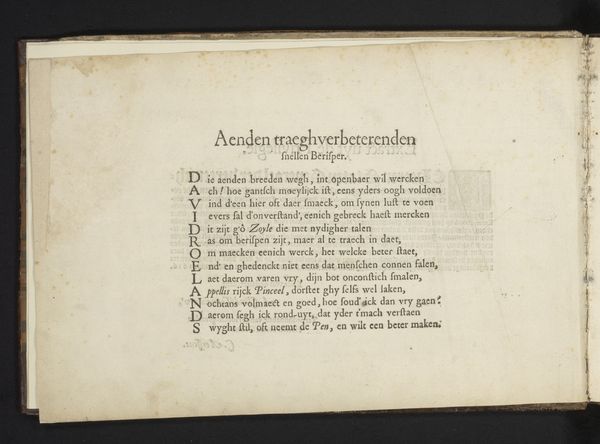 Aenden traeghverbeterenden
snellen Berisper.
Die aenden breeden wegh, int openbaer wil wercken
Ach! hoe gantsch moeylijck ist, eens yders oogh voldoen
Vind d'een hier oft daer smaeck, om synen lust te voen
Ievers sal d'onverstand', eenich gebreck haest mercken
Dit zijt g'ô Zoyle die met nydigher talen
Ras om berispen zijt, maer al te traech in daet,
Om maecken eenich werck, het welcke beter staet,
End' en ghedenckt niet eens dat menschen connen falen,
Laet daerom varen vry, dijn bot onconstich smalen,
Appellis rijck Pinceel, dorstet ghy selfs wel laken,
Nochtans volmaect en goed, hoe soud' ick dan vry gaen?
Daerom segh ick rond-uyt, dat yder t'mach verstaen
Swyght stil, oft neemt de Pen, en wilt een beter maken.